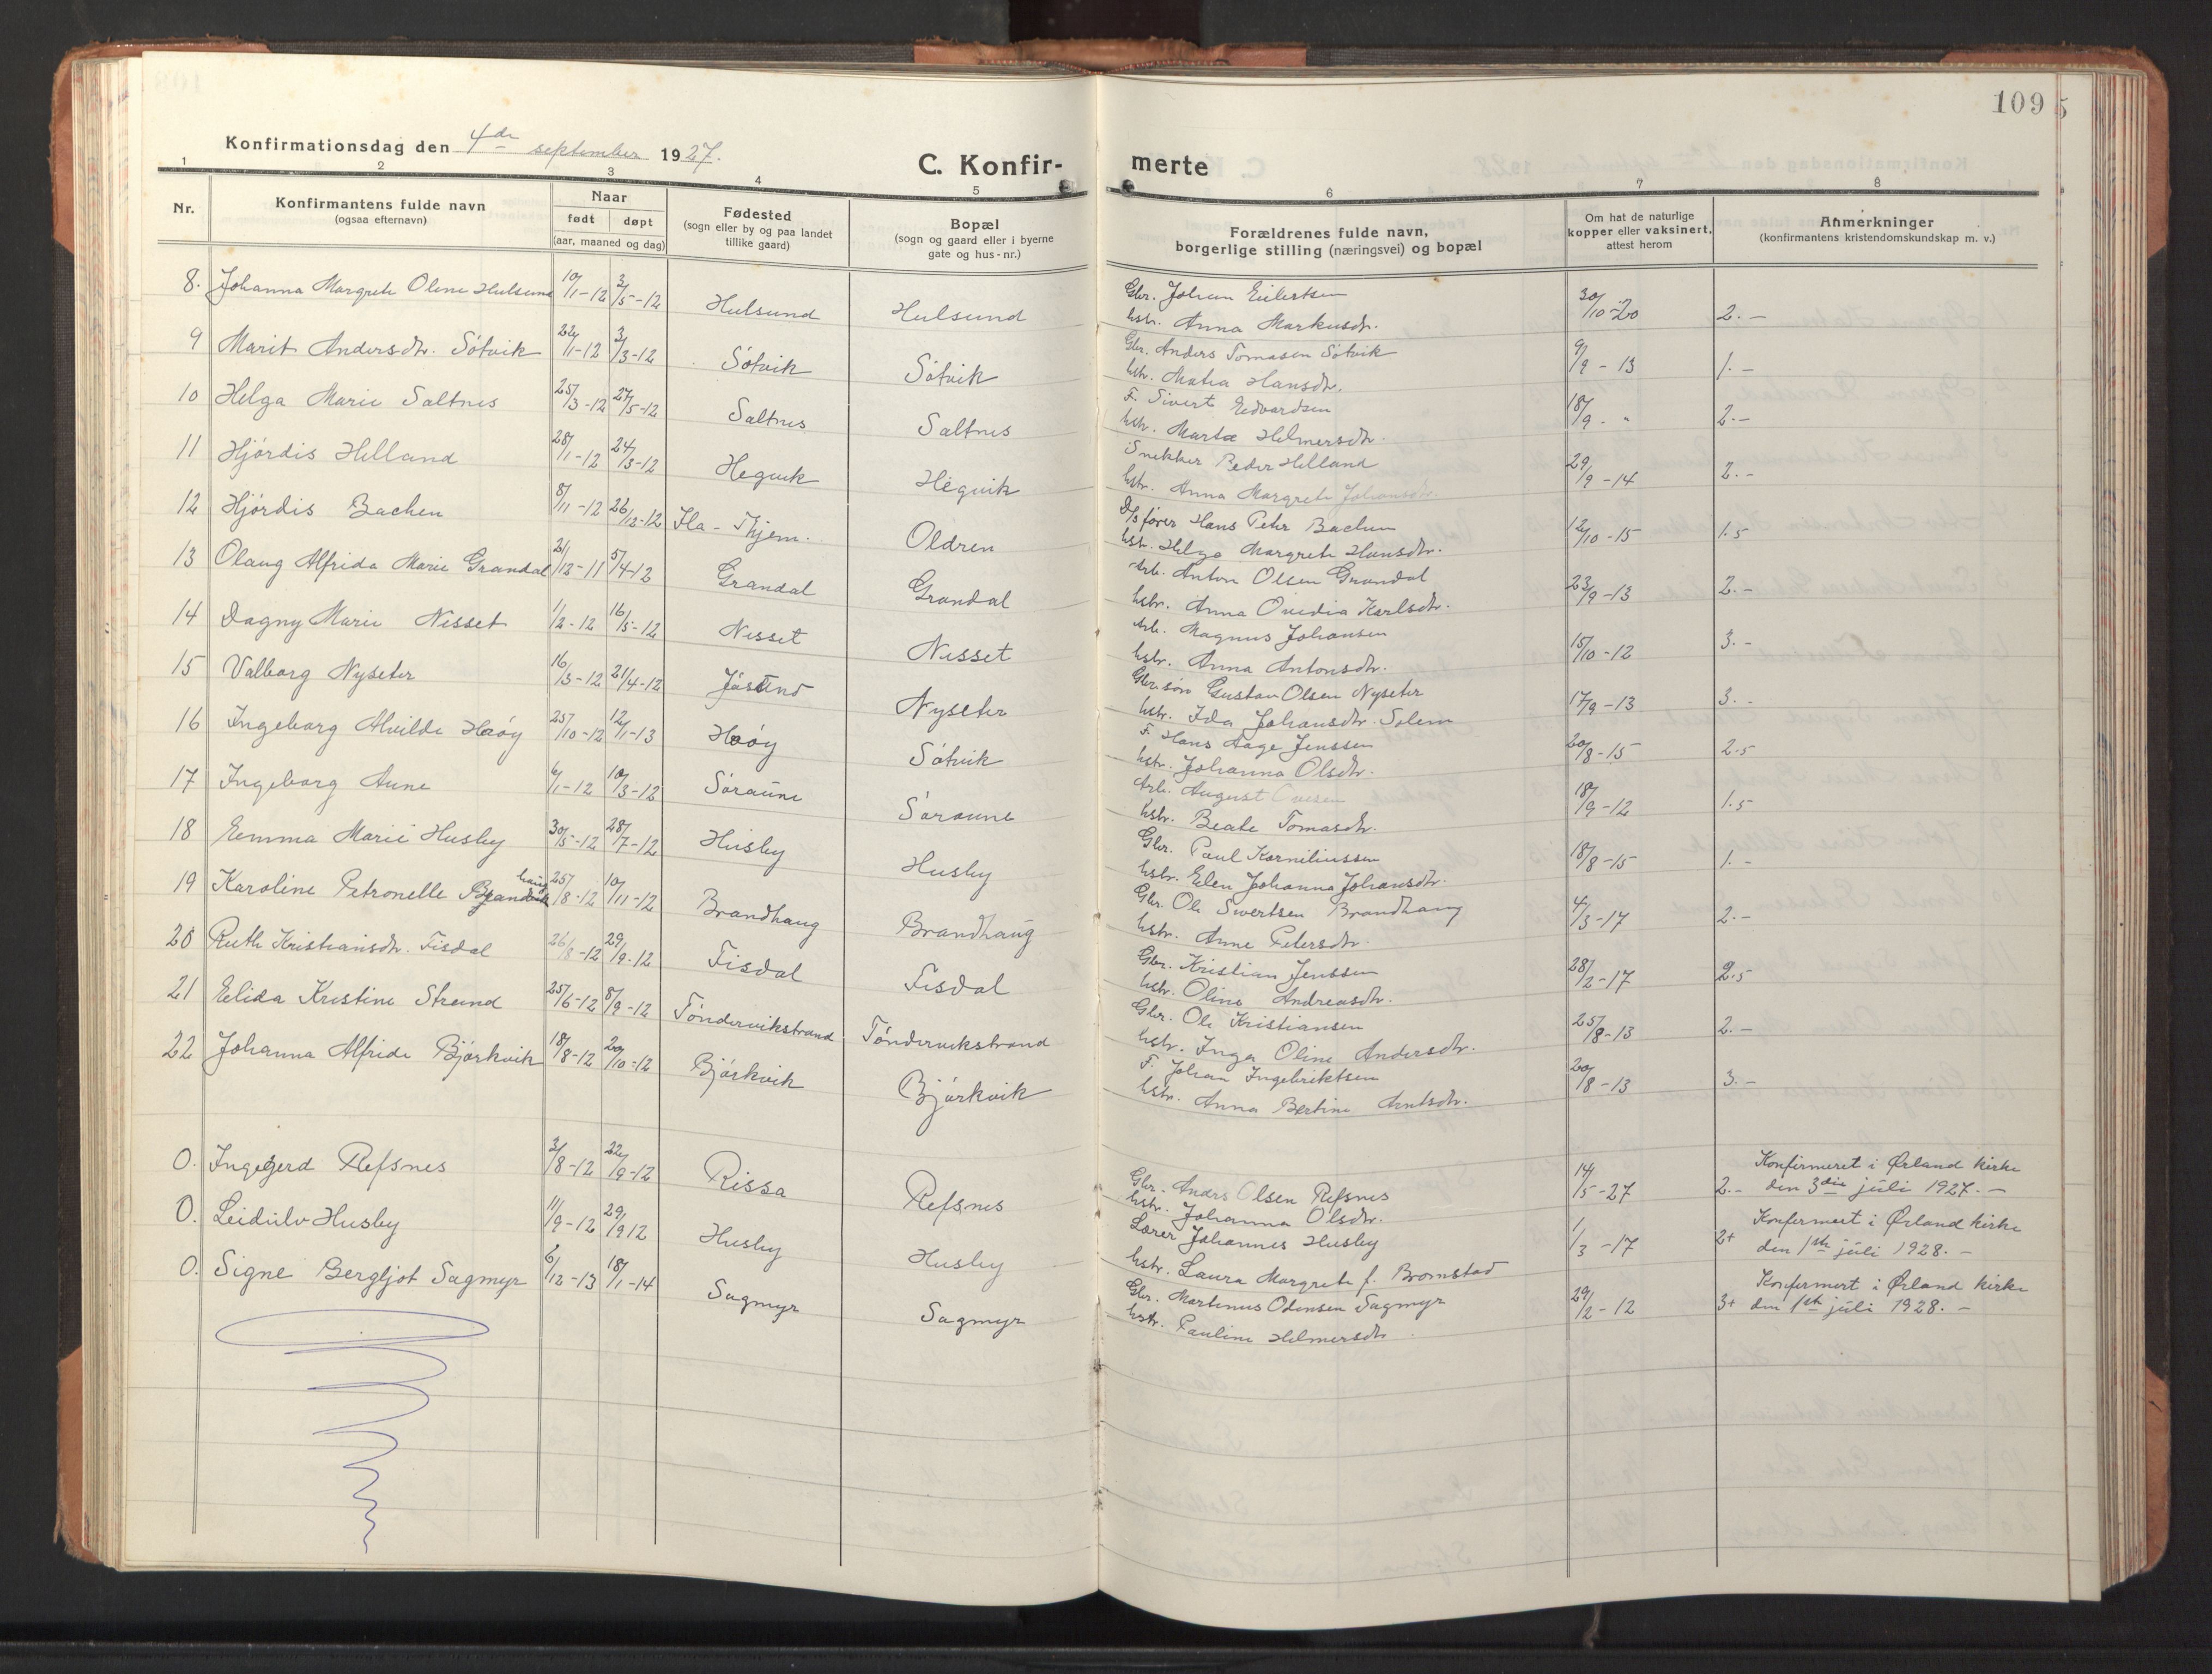 109
5
Konfirmationsdag den 4de september 1927.
C. Konfir- merte
1 2 3 4 5 6 7 8
Nr. Konfirmantens fulde navn (ogsaa efternavn) Naar født døpt (aar, maaned og dag) Fødested (sogn eller by og paa landet tillike gaard) Bopæl (sogn og gaard eller i byerne gate og hus-nr.) Forældrenes fulde navn, borgerlige stilling (næringsvei) og bopæl Om hat de naturlige kopper eller vaksinert, attest herom Anmerkninger (konfirmantens kristendomskundskap m. v.)
8. Johanna Margrete Oline Hulsund 10/1-12 3/5-12 Hulsund Hulsund Gbr. Johan Eilertsen 30/10-20 2.-
hstr. Anna Markusdtr.
9 Marit Andersdtr. Sötvik 22/1-12 3/3-12 Sötvik Sötvik Gbr. Anders Tomasen Sötvik 9/9-13 1.-
hstr. Matea Hansdtr.
10 Helga Marie Saltnes 25/3-12 27/5-12 Saltnes Saltnes F. Sivert Edvardsen 18/9 - " 2.-
hstr. Marta Helmersdtr.
11 Hjördis Helland 28/1-12 24/3-12 Hegvik Hegvik Snekker Peder Helland 29/9-14 2.-
hstr. Anna Margrete Johansdtr.
12 Hjördis Bachen 8/11-12 26/12-12 Ila - Thjem. Oldren D/s fører Hans Peter Bachen 12/10-15 1.5
hstr. Helga Margrete Hansdtr.
13 Olaug Alfrida Marie Grandal 21/12-11 5/4-12 Grandal Grandal Arb. Anton Olsen Grandal 23/9-13 2.-
hstr. Anna Ovedia Karlsdtr.
14 Dagny Marie Nesset 1/2-12 16/5-12 Nesset Nesset Arb. Magnus Johansen 15/10-12 3.-
hstr. Anna Antonsdtr.
15 Valborg Nyseter 16/3-12 21/4-12 Jösund Nyseter Gbr. sön Gustav Olsen Nyseter 17/9-13 3.-
hstr. Ida Johansdtr. Solem
16 Ingeborg Alvilde Hööy 25/10-12 12/1-13 Hööy Sötvik F. Hans Aage Jenssen 20/8-15 2.5
hstr. Johanna Olsdtr.
17 Ingeborg Aune 6/1-12 10/3-12 Söraune Söraune Arb. August Ovesen 18/9-12 1.5
hstr. Beate Tomasdtr.
18 Emma Marie Husby 30/5-12 28/7-12 Husby Husby Gbr. Paul Korneliussen 18/8-15 1.-
hstr. Elen Johanna Johansdtr.
19 Karoline Petronelle Brandhaug 25/8-12 10/11-12 Brandhaug Brandhaug Gbr. Ole Sivertsen Brandhaug 4/3-17 2.-
hstr. Anne Petersdtr.
20 Ruth Kristiansdtr. Fisdal 26/8-12 29/9-12 Fisdal Fisdal Gbr. Kristian Jenssen 28/2-17 2.5
hstr. Oline Andreasdtr.
21 Elida Kristine Strand 25/6-12 8/9-12 Töndervikstrand Töndervikstrand Gbr. Ole Kristiansen 25/8-13 2.-
hstr. Inga Oline Andersdtr.
22 Johanna Alfride Björkvik 18/8-12 20/10-12 Björkvik Björkvik F. Johan Ingebriktsen 20/8-13 3.-
hstr. Anna Bertine Arntsdtr.
0. Ingegjerd Refsnes 3/8-12 22/9-12 Rissa Refsnes Gbr. Anders Olsen Refsnes 14/5-27 2.- Konfirmeret i Ørland kirke
hstr. Johanna Olsdtr. den 3die juli 1927.-
0. Leidulv Husby 11/9-12 29/9 12 Husby Husby Lærer Johannes Husby 1/3-17 2+ Konfirmert i Ørland kirke
hstr. Laura Margrete f. Bromstad den 1ste juli 1928.-
0. Signe Bergljot Sagmyr 6/12-13 18/1-14 Sagmyr Sagmyr Gbr. Martinus Odinsen Sagmyr 29/2-12 3+ Konfirmert i Ørland kirke
hstr. Pauline Helmersdtr. den 1ste juli 1928.-